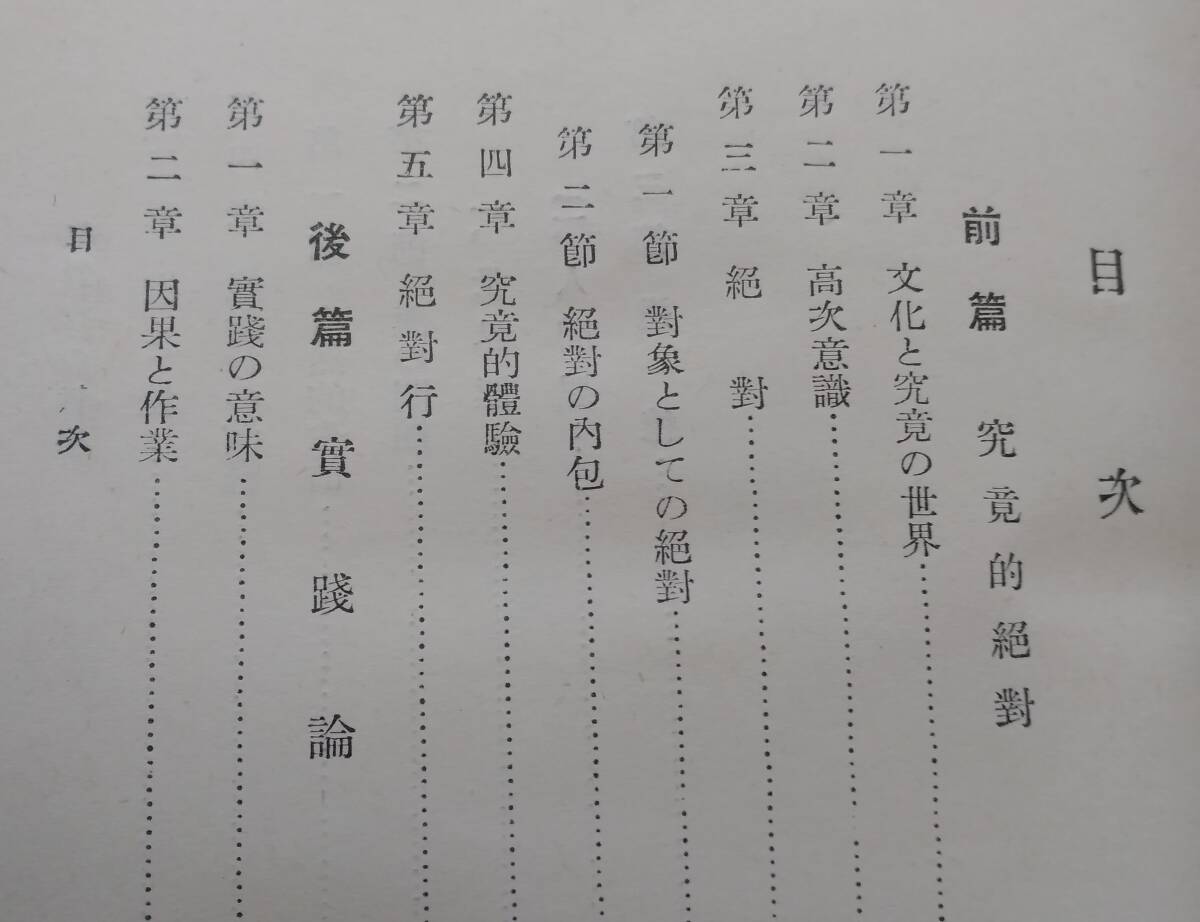 目次
前篇 究竟的絕對
第一章 文化と究竟の世界…………
第二章 高次意識…………
第三章 絕對…………
第一節 對象としての絕對…………
第二節 絕對の內包…………
第四章 究竟的體驗…………
第五章 絕對行…………
後篇 實踐論
第一章 實踐の意味…………
第二章 因果と作業…………
目次